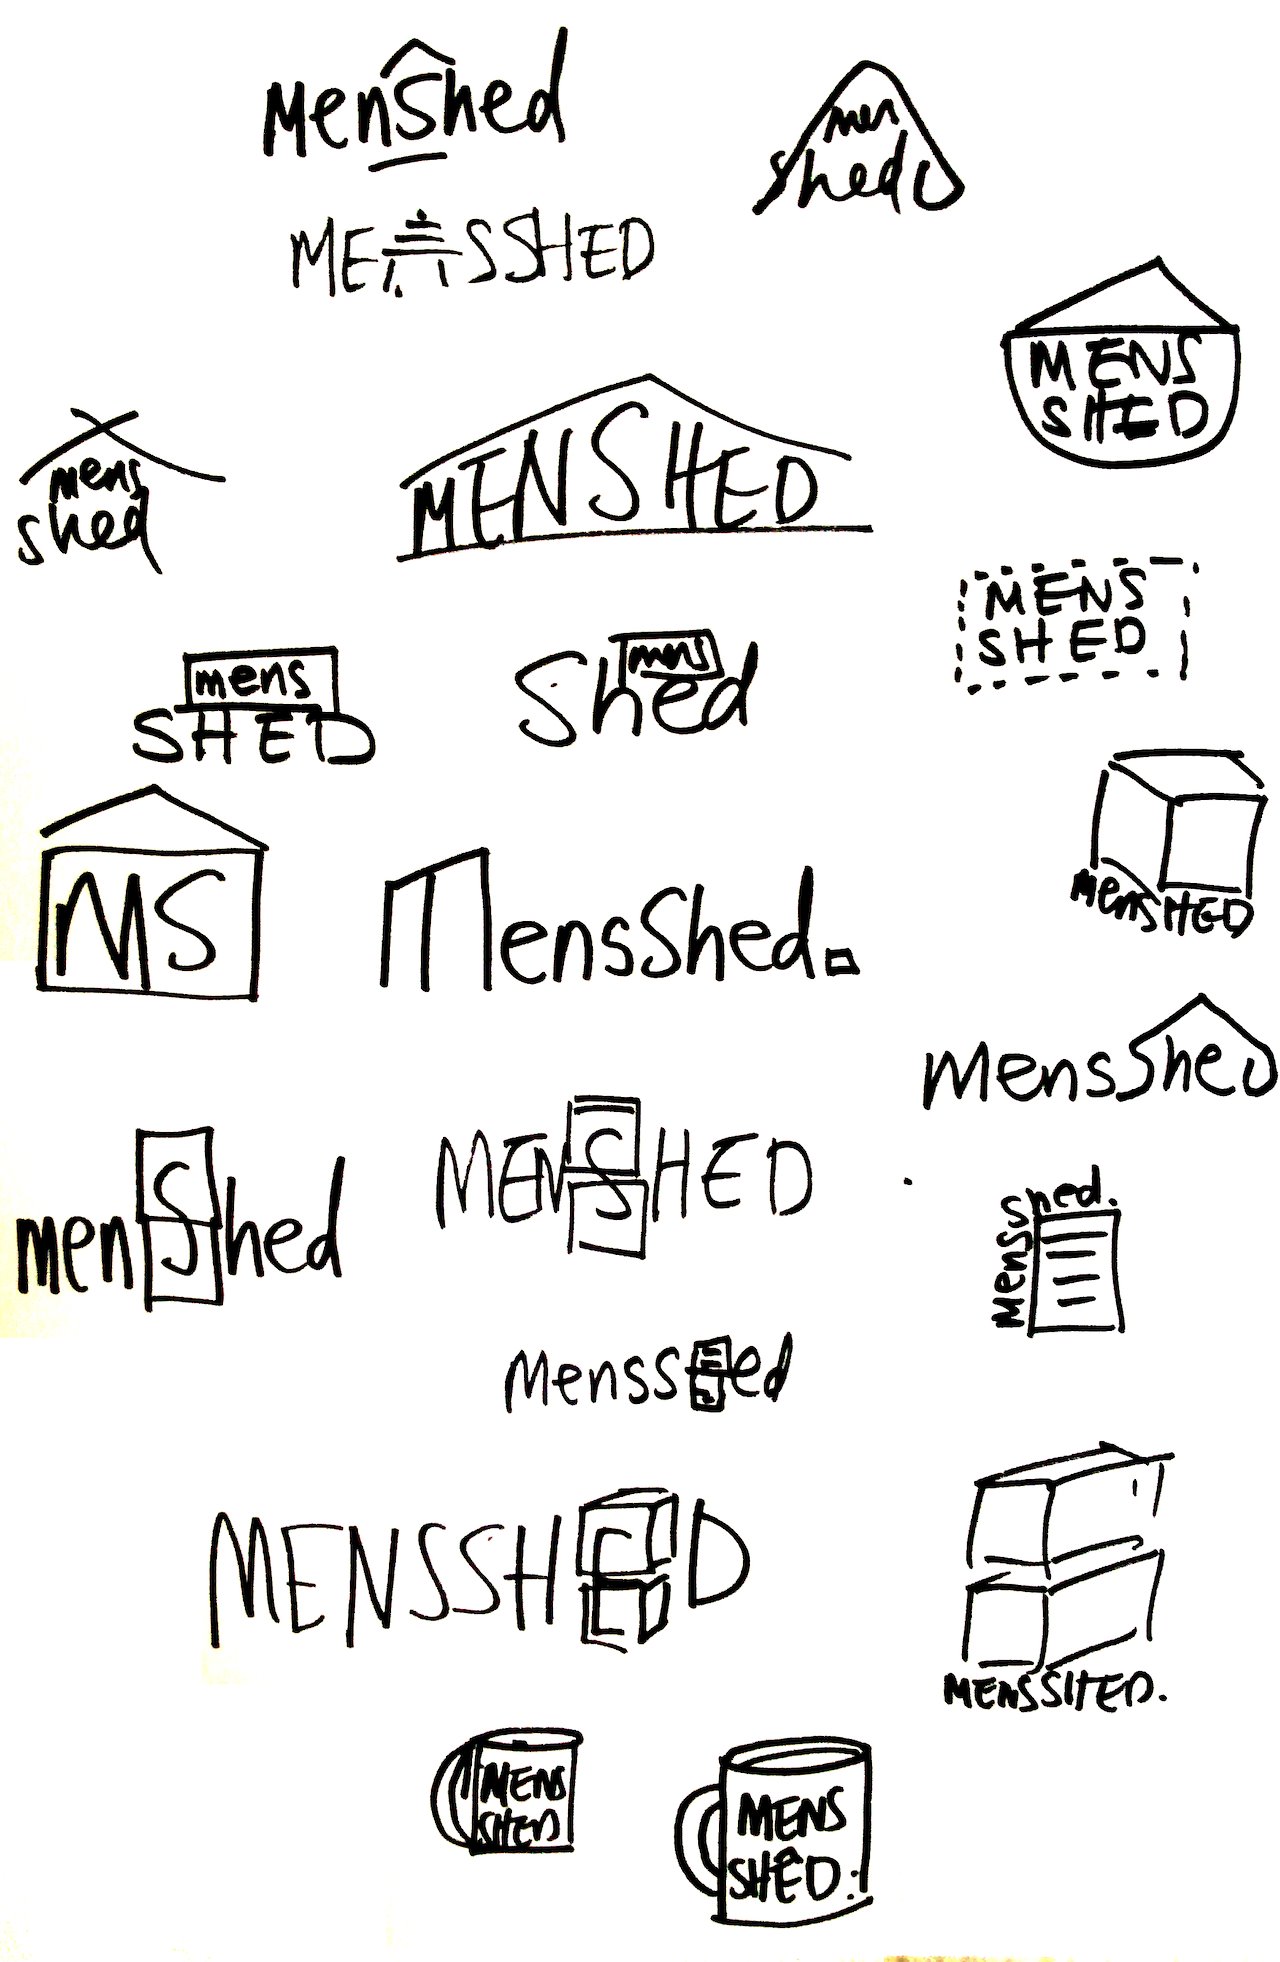 MenShed
men
shed
MENSSHED
MENS
SHED
mens
shed
MENSHED
MENS
SHED
mens
SHED
mens
Shed
MS
MensShed.
MensHED
MensShed
menShed
MENSHED
Mensshed.
Menssed
MENSSHED
MENSSHED.
MENS
SHED
MENS
SHED.